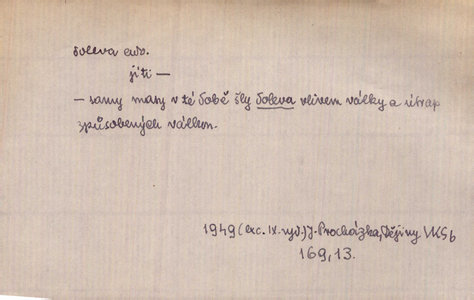 doleva adv.
jíti —
— samy masy v té době šly doleva vlivem války a útrap
způsobených válkou.
1949 (exc. IX. vyd.) J. Procházka, Dějiny VKSb
169, 13.